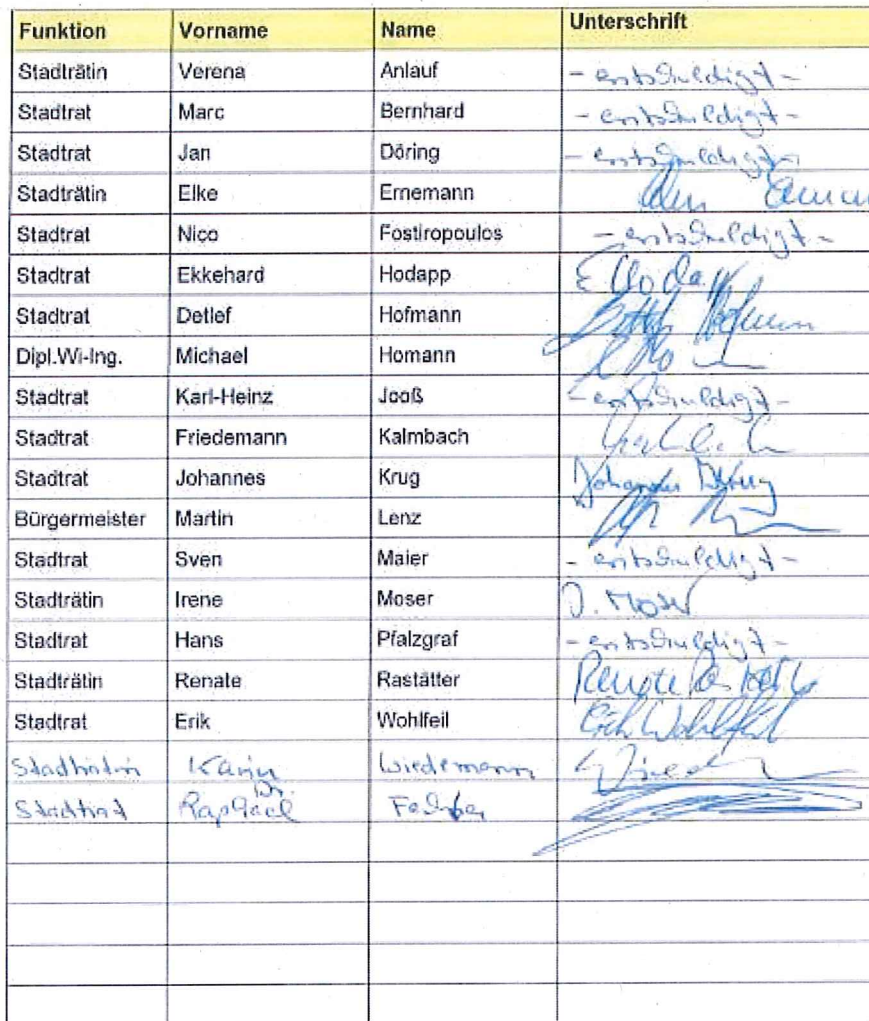 Funktion Vorname Name Unterschrift
Stadträtin Verena Anlauf - entschuldigt -
Stadtrat Marc Bernhard - entschuldigt -
Stadtrat Jan Döring - entschuldigt -
Stadträtin Elke Ernemann
Stadtrat Nico Fostiropoulos - entschuldigt -
Stadtrat Ekkehard Hodapp E Hodapp
Stadtrat Detlef Hofmann
Dipl.Wi-Ing. Michael Homann
Stadtrat Karl-Heinz Jooß - entschuldigt -
Stadtrat Friedemann Kalmbach
Stadtrat Johannes Krug Johannes Krug
Bürgermeister Martin Lenz
Stadtrat Sven Maier - entschuldigt -
Stadträtin Irene Moser I. Moser
Stadtrat Hans Pfalzgraf - entschuldigt -
Stadträtin Renate Rastätter Renate Rastätter
Stadtrat Erik Wohlfeil Erik Wohlfeil
Stadträtin Karin Wiedemann
Stadtrat Dr. Raphael